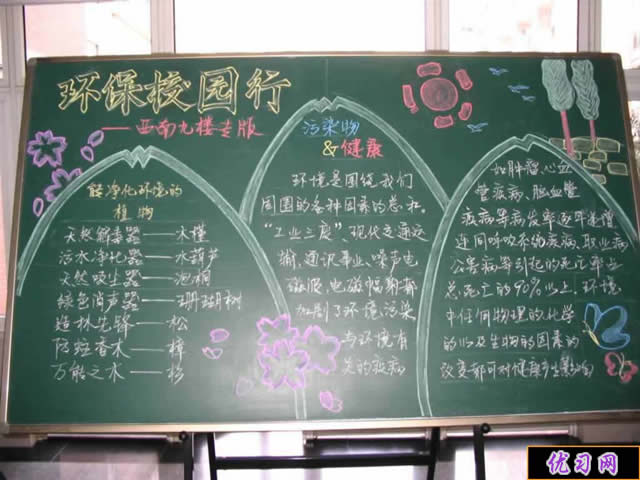 环保校园行
——西南九楼专版
能净化环境的
植物
天然解毒器——木槿
污水净化器——水葫芦
天然吸尘器——泡桐
绿色消声器——珊瑚树
造林先锋——松
防蛀香木——樟
万能之木——杉
污染物
&健康
环境是围绕我们
周围的各种因素的总和。
"工业三废"、现代交通运
输、通讯事业、噪声电
磁波、电磁辐射都
加剧了环境污染
与环境有
关的疾病
如肿瘤、心血
管疾病、脑血管
疾病等病发率逐年递增
连同呼吸系统疾病、职业病
公害病等引起的死亡率占
总死亡的90%以上、环境
中任何物理的化学
的以及生物的因素的
改变都可对健康产生影响
优习网